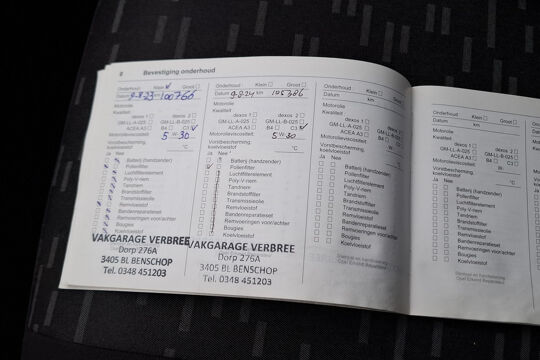 8 Bevestiging onderhoud
Onderhoud Klein Groot
Datum 9-8-23 100766
Motorolie
Kwaliteit
dexos 1 dexos 2
GM-LL-A-025 GM-LL-B-025
ACEA A3 B4 C3
Motorolieviscositeit 5 W 30
Vorstbescherming, koelvloeistof °C
Ja Nee
Batterij (handzender)
Pollenfilter
Luchtfilterelement
Poly-V-riem
Tandriem
Brandstoffilter
Transmissieolie
Remvloeistof
Bandenreparatieset
Remvoeringen voor/achter
Bougies
Koelvloeistof
VAKGARAGE VERBREE
Dorp 276A
3405 BL BENSCHOP
Tel. 0348 451203
Onderhoud Klein Groot
Datum 9-8-24 km 105386
Motorolie
Kwaliteit
dexos 1 dexos 2
GM-LL-A-025 GM-LL-B-025
ACEA A3 B4 C3
Motorolieviscositeit 5 W 30
Vorstbescherming, koelvloeistof °C
Ja Nee
Batterij (handzender)
Pollenfilter
Luchtfilterelement
Poly-V-riem
Tandriem
Brandstoffilter
Transmissieolie
Remvloeistof
Bandenreparatieset
Remvoeringen voor/achter
Bougies
Koelvloeistof
VAKGARAGE VERBREE
Dorp 276A
3405 BL BENSCHOP
Tel. 0348 451203
Onderhoud Klein Groot
Datum km
Motorolie
Kwaliteit
dexos 1 dexos 2
GM-LL-A-025 GM-LL-B-025
ACEA A3 B4 C3
Motorolieviscositeit W
Vorstbescherming, koelvloeistof °C
Ja Nee
Batterij (handzender)
Pollenfilter
Luchtfilterelement
Poly-V-riem
Tandriem
Brandstoffilter
Transmissieolie
Remvloeistof
Bandenreparatieset
Remvoeringen voor/achter
Bougies
Koelvloeistof
Onderhoud Klein
Datum km
Motorolie
Kwaliteit
dexos 1
GM-LL-A-025 GM-LL
ACEA A3 B4
Motorolieviscositeit
Vorstbescherming, koelvloeistof
Ja Nee
Batterij (handzender)
Pollenfilter
Luchtfilterelement
Poly-V-riem
Tandriem
Brandstoffilter
Transmissieolie
Remvloeistof
Bandenreparatieset
Remvoeringen voor/achter
Bougies
Koelvloeistof